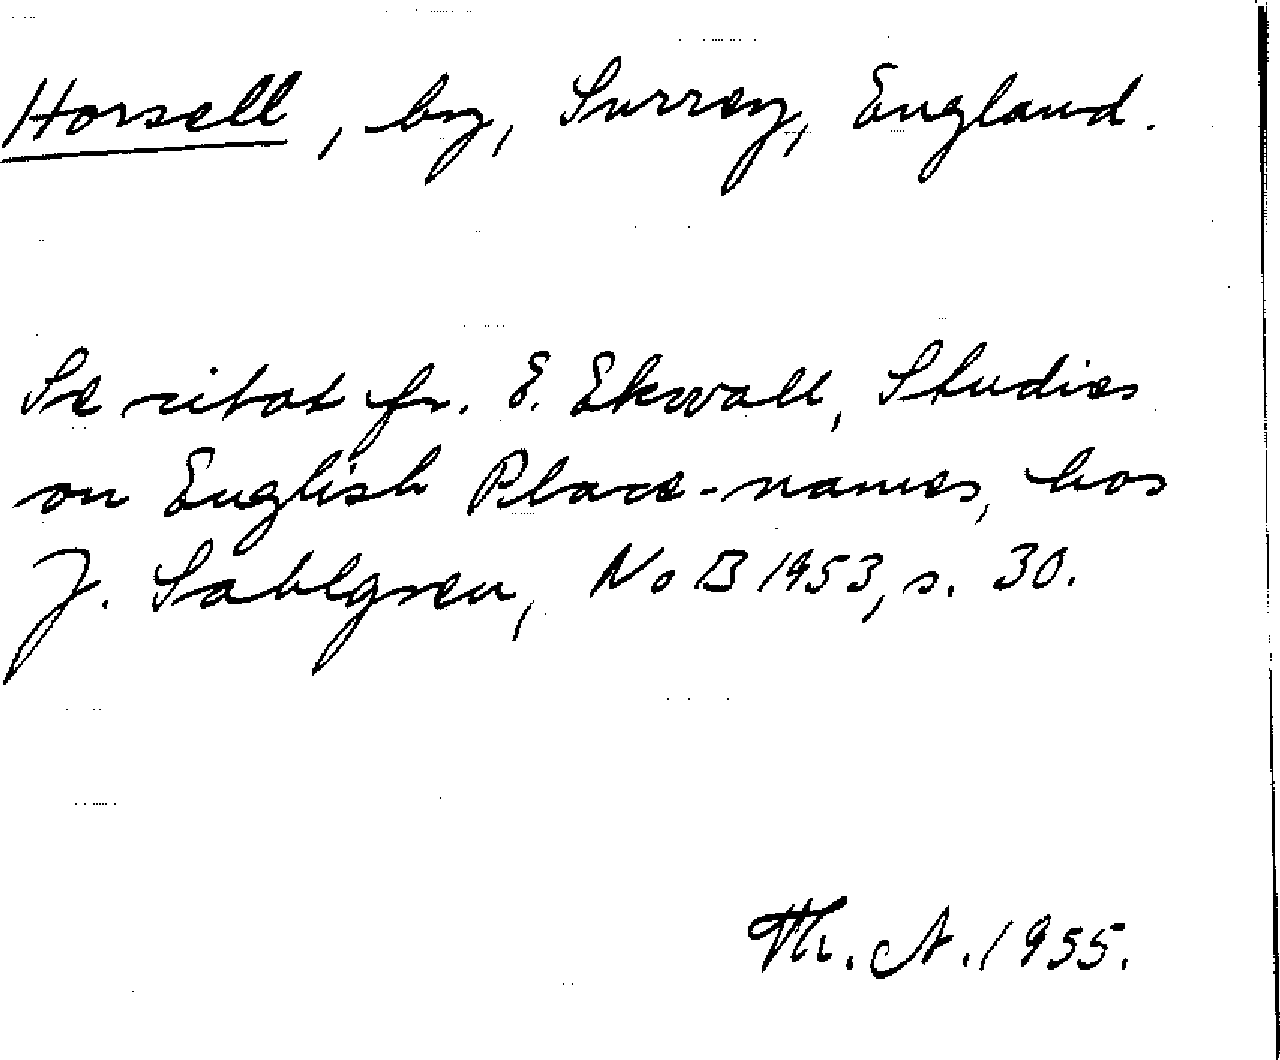 Horsell, by, Surrey, England.
Se citat fr. E. Ekwall, Studies
on English Place-names, hos
J. Sahlgren, NoB 1953, s. 30.
Th. A. 1955.